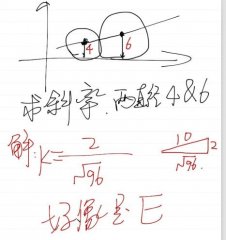 4
6
求斜率.两直径4&6
解:K=2/√96
10
2
√96
好像是E